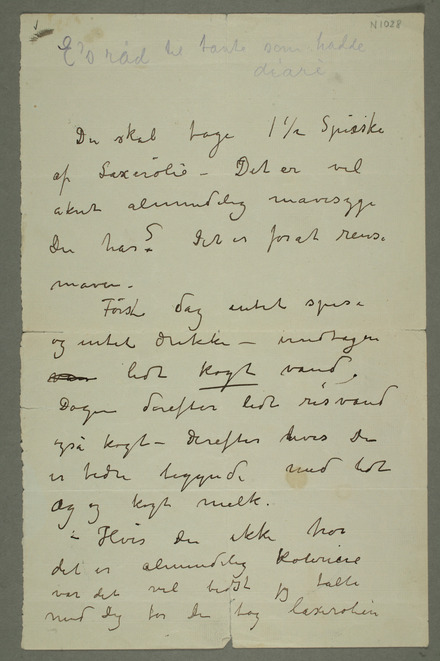 N1028
E's råd te tante som hadde
diaré
Du skal tage 1 1/2 Spiseske
af Laxerolie – Det er vel
akut almindelig mavesyge
Du har? Det er forat rense
maven.
Først dag intet spise
og intet drikke – undtagen
lidt kogt vand.
Dagen derefter lidt risvand
også kogt – derefter hvis Du
er bedre begynde med lidt
æg og kogt melk.
– Hvis du ikke har
det er almindelig Kolerine
var det vel bedst jeg talte
med dig før du tog laxerolien